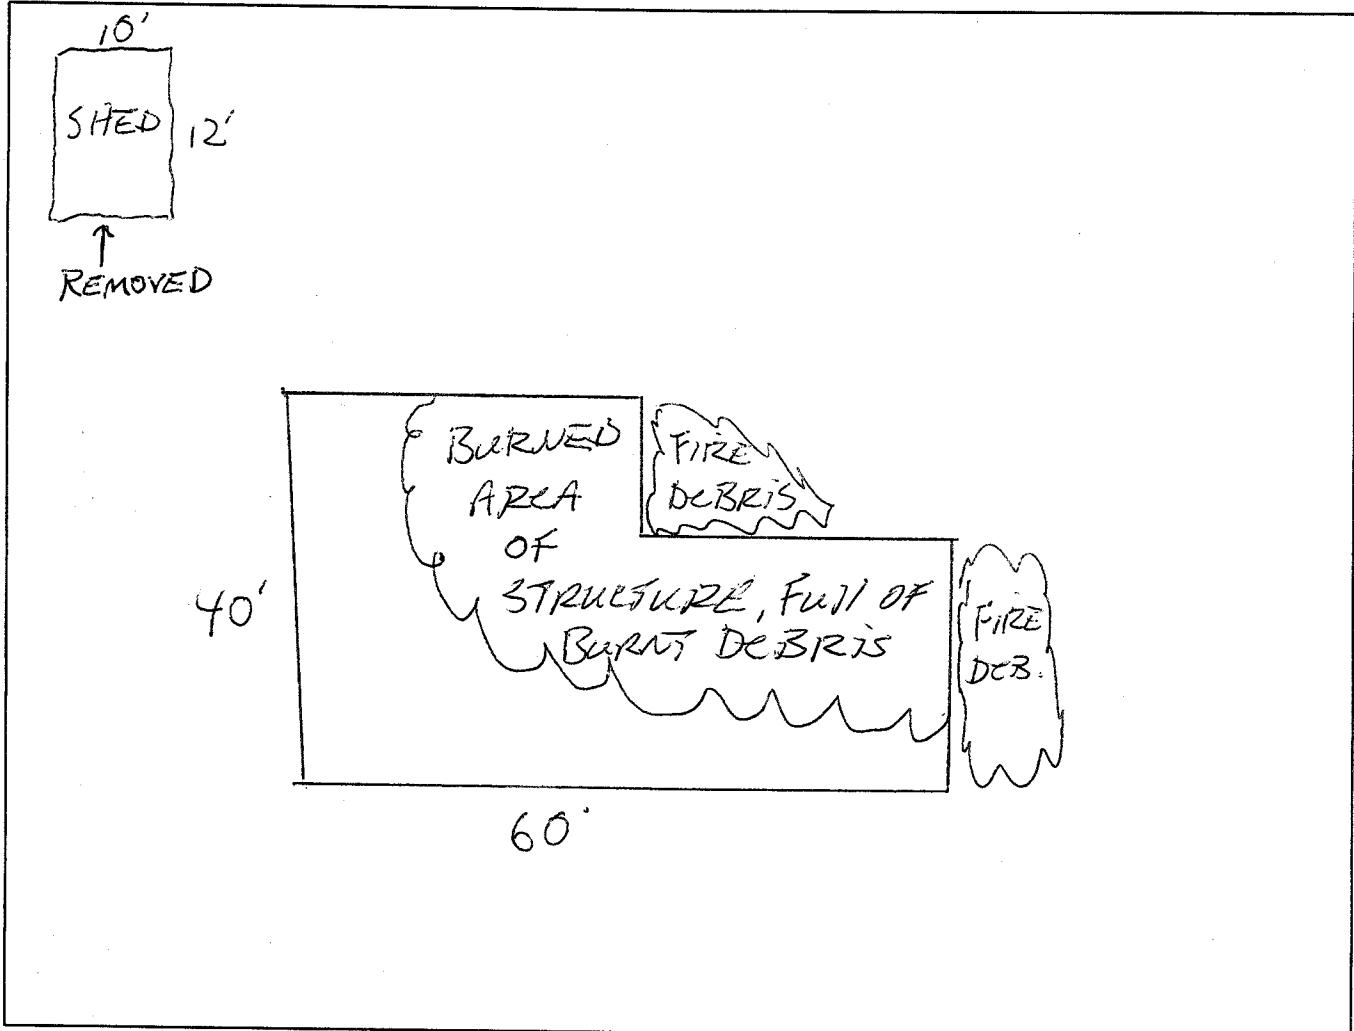 10'
SHED
12'
REMOVED
BURNED
AREA
OF
STRUCTURE, FUll OF
BURNT DEBRiS
FIRE
DEBRiS
FIRE
DEB.
40'
60'